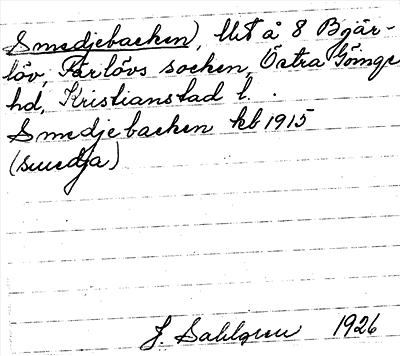 Smedjebacken), Ut å 8 Bjär-
löv, Färlövs socken, Östra Göinge
hd, Kristianstad l.
Smedjebacken kb 1915
(smedja)
J. Sahlgren 1926